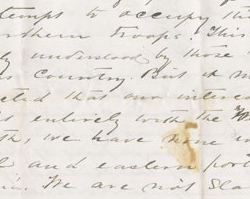 tempts to occupy
Northern Troops! This
understood by those
Country. But it
that our
is entirely with the
we have none
and eastern
We are not